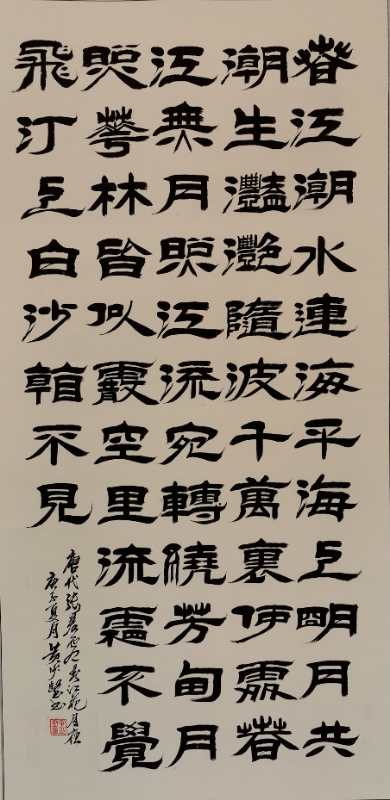 春江潮水連海平海上明月共
潮生灩灧隨波千萬裏何處春
江無月照江流宛轉繞芳甸月
照華林皆似霰空里流霜不覺
飛汀上白沙看不見
唐代張若虛春江花月夜
庚子夏月黃